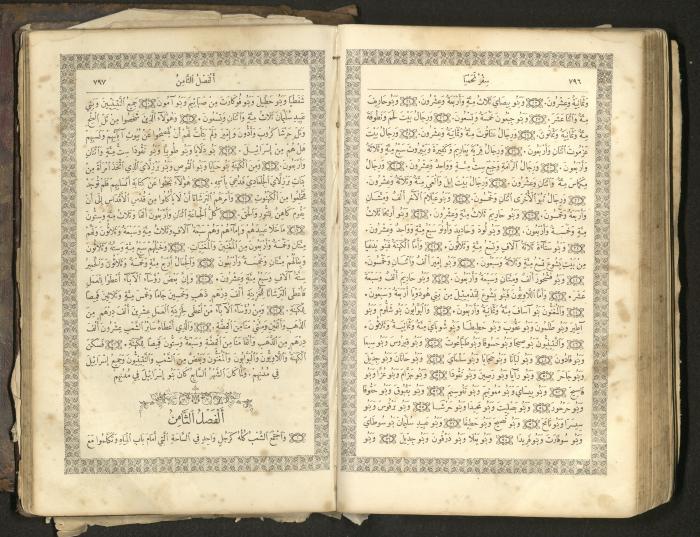 ٧٩٦
سِفْرُ نَحَمْيَا
وَثَمَانِيَةٌ وَعِشْرُونَ. وَبَنُو بِيصَايَ ثَلَاثُ مِئَةٍ وَأَرْبَعَةٌ وَعِشْرُونَ. وَبَنُو حَارِيفَ
مِئَةٌ وَٱثْنَا عَشَرَ. وَبَنُو جِبْعُونَ خَمْسَةٌ وَتِسْعُونَ. وَرِجَالُ بَيْتَ لَحْمَ وَنَطُوفَةَ
مِئَةٌ وَثَمَانِيَةٌ وَثَمَانُونَ. وَرِجَالُ عَنَاتُوتَ مِئَةٌ وَثَمَانِيَةٌ وَعِشْرُونَ. وَرِجَالُ بَيْتَ
عَزْمُوتَ ٱثْنَانِ وَأَرْبَعُونَ. وَرِجَالُ قَرْيَةِ يَعَارِيمَ وَكَفِيرَةَ وَبَئِيرُوتَ سَبْعُ مِئَةٍ وَثَلَاثَةٌ
وَأَرْبَعُونَ. وَرِجَالُ ٱلرَّامَةِ وَجَبَعَ سِتُّ مِئَةٍ وَوَاحِدٌ وَعِشْرُونَ. وَرِجَالُ
مِكْمَاسَ مِئَةٌ وَٱثْنَانِ وَعِشْرُونَ. وَرِجَالُ بَيْتَ إِيلَ وَٱلْعَيِّ مِئَةٌ وَثَلَاثَةٌ وَعِشْرُونَ.
وَرِجَالُ نَبُو ٱلْأُخْرَى ٱثْنَانِ وَخَمْسُونَ. وَبَنُو عِيلَامَ ٱلْآخَرِ أَلْفٌ وَمِئَتَانِ
وَأَرْبَعَةٌ وَخَمْسُونَ. وَبَنُو حَارِيمَ ثَلَاثُ مِئَةٍ وَعِشْرُونَ. وَبَنُو أَرِيحَا ثَلَاثُ
مِئَةٍ وَخَمْسَةٌ وَأَرْبَعُونَ. وَبَنُو لُودَ وَحَادِيدَ وَأُونُو سَبْعُ مِئَةٍ وَوَاحِدٌ وَعِشْرُونَ.
وَبَنُو سَنَاءَةَ ثَلَاثَةُ آلَافٍ وَتِسْعُ مِئَةٍ وَثَلَاثُونَ. وَأَمَّا ٱلْكَهَنَةُ فَبَنُو يَدَعْيَا
مِنْ بَيْتِ يَشُوعَ تِسْعُ مِئَةٍ وَثَلَاثَةٌ وَسَبْعُونَ. وَبَنُو إِمِّيرَ أَلْفٌ وَٱثْنَانِ وَخَمْسُونَ.
وَبَنُو فَشْحُورَ أَلْفٌ وَمِئَتَانِ وَسَبْعَةٌ وَأَرْبَعُونَ. وَبَنُو حَارِيمَ أَلْفٌ وَسَبْعَةَ
عَشَرَ. وَأَمَّا ٱللَّاوِيُّونَ فَبَنُو يَشُوعَ لِقَدْمِيئِيلَ مِنْ بَنِي هُودُويَا أَرْبَعَةٌ وَسَبْعُونَ.
وَٱلْمُغَنُّونَ بَنُو آسَافَ مِئَةٌ وَثَمَانِيَةٌ وَأَرْبَعُونَ. وَٱلْبَوَّابُونَ بَنُو شَلُّومَ وَبَنُو
آطِيرَ وَبَنُو طَلْمُونَ وَبَنُو عَقُّوبَ وَبَنُو حَطِيطَا وَبَنُو شُوبَايَ مِئَةٌ وَثَمَانِيَةٌ وَثَلَاثُونَ.
وَٱلنَّتِينِيُّونَ بَنُو صِيحَا وَبَنُو حَسُوفَا وَبَنُو طَبَاعُوتَ وَبَنُو قِيرُوسَ وَبَنُو سِيعَا
وَبَنُو فَادُونَ وَبَنُو لَبَانَا وَبَنُو حَجَابَا وَبَنُو سَلْمَايَ وَبَنُو حَانَانَ وَبَنُو جِدِّيلَ
وَبَنُو جَاحَرَ وَبَنُو رَآيَا وَبَنُو رَصِينَ وَبَنُو نَقُودَا وَبَنُو جَزَّامَ وَبَنُو عُزَّا وَبَنُو
فَاسِيحَ وَبَنُو بِيسَايَ وَبَنُو مَعُونِيمَ وَبَنُو نَفُوسِيمَ وَبَنُو بَقْبُوقَ وَبَنُو حَقُوفَا
وَبَنُو حَرْحُورَ وَبَنُو بَصْلِيتَ وَبَنُو مَحِيدَا وَبَنُو حَرْشَا وَبَنُو بَرْقُوسَ وَبَنُو
سِيسَرَا وَبَنُو تَامَحَ وَبَنُو نَصِيحَ وَبَنُو حَطِيفَا وَبَنُو عَبِيدِ سُلَيْمَانَ بَنُو سُوطَايَ
وَبَنُو سُوفَارَتَ وَبَنُو فَرِيدَا وَبَنُو يَعْلَا وَبَنُو دَرْقُونَ وَبَنُو جِدِّيلَ وَبَنُو
أَلْفَصْلُ ٱلثَّامِنُ
٧٩٧
شَفَطْيَا وَبَنُو حَطِّيلَ وَبَنُو فُوكَارَتَ مِنْ صَبَائِيمَ وَبَنُو آمُونَ جَمِيعُ ٱلنَّتِينِيِّينَ وَبَنِي
عَبِيدِ سُلَيْمَانَ ثَلَاثُ مِئَةٍ وَٱثْنَانِ وَتِسْعُونَ. وَهٰؤُلَاءِ ٱلَّذِينَ شَخَصُوا مِنْ تَلِّ ٱلْمِلْحِ
وَتَلِّ حَرْشَا كَرُوبَ وَأَدُّونَ وَإِمِّيرَ وَلَمْ يَثْبُتْ لَهُمْ أَنْ يُفْصِحُوا عَنْ بُيُوتِ آبَائِهِمْ وَنَسَبِهِمْ
هَلْ هُمْ مِنْ إِسْرَائِيلَ. بَنُو دَلَايَا وَبَنُو طُوبِيَّا وَبَنُو نَقُودَا سِتُّ مِئَةٍ وَٱثْنَانِ
وَأَرْبَعُونَ. وَمِنَ ٱلْكَهَنَةِ بَنُو حَبَايَا وَبَنُو ٱلْقُوصِ وَبَنُو بَرْزِلَّايَ ٱلَّذِي ٱتَّخَذَ ٱمْرَأَةً مِنْ
بَنَاتِ بَرْزِلَّايَ ٱلْجِلْعَادِيِّ فَدُعِيَ بِٱسْمِهِ. هٰؤُلَاءِ بَحَثُوا عَنْ كِتَابَةِ أَنْسَابِهِمْ فَلَمْ تُوجَدْ
فَخُلِعُوا مِنَ ٱلْكَهَنُوتِ وَأَمَرَهُمُ ٱلتِّرْشَاتَا أَنْ لَا يَأْكُلُوا مِنْ قُدْسِ ٱلْأَقْدَاسِ إِلَى أَنْ
يَقُومَ كَاهِنٌ بِٱلنُّورِ وَٱلْحَقِّ. كُلُّ ٱلْجَمَاعَةِ ٱثْنَانِ وَأَرْبَعُونَ أَلْفًا وَثَلَاثُ مِئَةٍ وَسِتُّونَ
مَا خَلَا عَبِيدَهُمْ وَإِمَاءَهُمْ وَهُمْ سَبْعَةُ آلَافٍ وَثَلَاثُ مِئَةٍ وَسَبْعَةٌ وَثَلَاثُونَ وَلَهُمْ
مِئَتَانِ وَخَمْسَةٌ وَأَرْبَعُونَ مِنَ ٱلْمُغَنِّينَ وَٱلْمُغَنِّيَاتِ وَخَيْلُهُمْ سَبْعُ مِئَةٍ وَسِتَّةٌ وَثَلَاثُونَ
وَبِغَالُهُمْ مِئَتَانِ وَخَمْسَةٌ وَأَرْبَعُونَ وَٱلْجِمَالُ أَرْبَعُ مِئَةٍ وَخَمْسَةٌ وَثَلَاثُونَ وَٱلْحَمِيرُ
سِتَّةُ آلَافٍ وَسَبْعُ مِئَةٍ وَعِشْرُونَ. وَإِنَّ بَعْضَ رُؤَسَاءِ ٱلْآبَاءِ أَعْطَوْا لِلْعَمَلِ
فَأَعْطَى ٱلتِّرْشَاتَا لِلْخَزِينَةِ أَلْفَ دِرْهَمِ ذَهَبٍ وَخَمْسِينَ جَامًا وَخَمْسَ مِئَةٍ وَثَلَاثِينَ قَمِيصًا
لِلْكَهَنَةِ. وَمِنْ رُؤَسَاءِ ٱلْآبَاءِ مَنْ أَعْطَى خَزِينَةَ ٱلْعَمَلِ عِشْرِينَ أَلْفَ دِرْهَمٍ مِنَ
ٱلذَّهَبِ وَأَلْفَيْنِ وَمِئَتَيْ مَنًا مِنَ ٱلْفِضَّةِ. وَٱلَّذِي أَعْطَاهُ سَائِرُ ٱلشَّعْبِ عِشْرُونَ أَلْفَ
دِرْهَمٍ مِنَ ٱلذَّهَبِ وَأَلْفَا مَنًا مِنَ ٱلْفِضَّةِ وَسَبْعَةٌ وَسِتُّونَ قَمِيصًا لِلْكَهَنَةِ. فَسَكَنَ
ٱلْكَهَنَةُ وَٱللَّاوِيُّونَ وَٱلْبَوَّابُونَ وَٱلْمُغَنُّونَ وَبَعْضٌ مِنَ ٱلشَّعْبِ وَٱلنَّتِينِيُّونَ وَجَمِيعُ إِسْرَائِيلَ
فِي مُدُنِهِمْ. وَلَمَّا كَانَ ٱلشَّهْرُ ٱلسَّابِعُ كَانَ بَنُو إِسْرَائِيلَ فِي مُدُنِهِمْ
أَلْفَصْلُ ٱلثَّامِنُ
وَٱجْتَمَعَ ٱلشَّعْبُ كُلُّهُ كَرَجُلٍ وَاحِدٍ فِي ٱلسَّاحَةِ ٱلَّتِي أَمَامَ بَابِ ٱلْمِيَاهِ وَتَكَلَّمُوا مَعَ